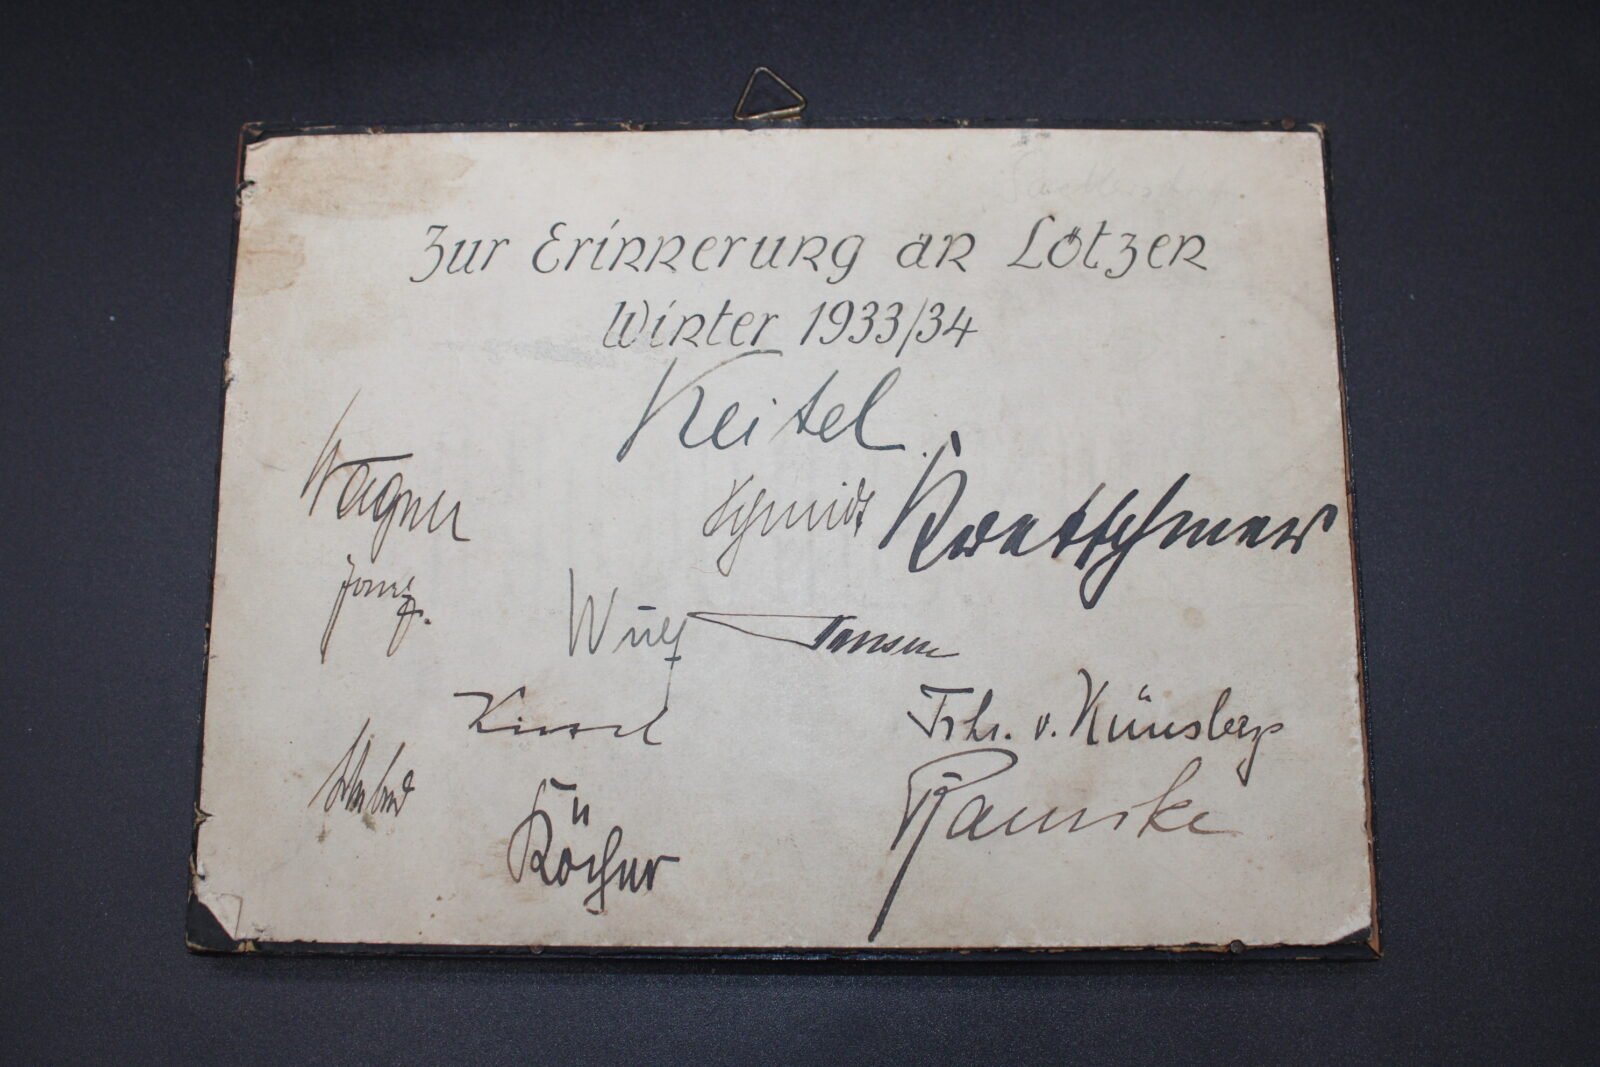 Zur Erinnerung an Lötzen
Winter 1933/34
Keitel
Wagner
Schmidt
Kretschmer
Wulf
Jansen
Frhr. v. Künsberg
Köcher
Ramcke